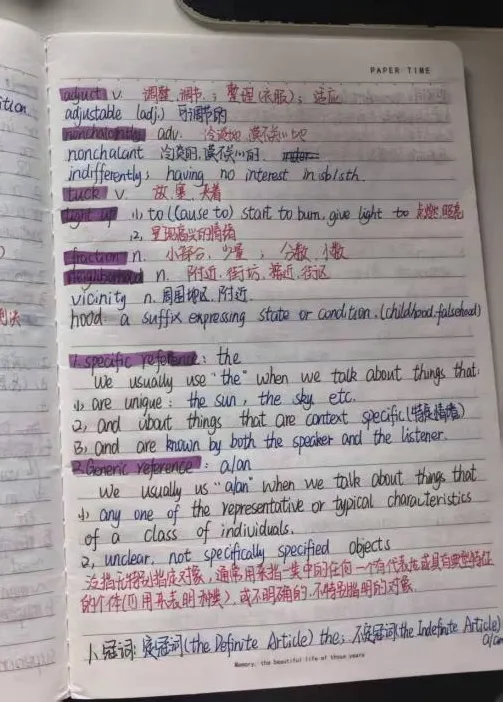 PAPER TIME
adjust v. 调整、调节；整理(衣服)；适应
adjustable (adj.) 可调节的
nonchalantly adv. 冷淡地、漠不关心地
nonchalant 冷淡的、漠不关心的
indifferently; having no interest in sb/sth.
tuck v. 放、塞、夹着
light up (1) to (cause to) start to burn, give light to 点燃、照亮
(2) 呈现高兴的情绪
fraction n. 小部分、少量；分数、小数
neighborhood n. 附近、街坊、接近、街区
vicinity n. 周围地区、附近.
hood: a suffix expressing state or condition. (childhood. falsehood)
1. specific reference: the
We usually use "the" when we talk about things that:
(1) are unique: the sun, the sky etc.
2, and about things that are context specific(特定情境)
3, and are known by both the speaker and the listener.
2. Generic reference: a/an
We usually us "a/an" when we talk about things that
(1) any one of the representative or typical characteristics
of a class of individuals.
2, unclear, not specifically specified objects
没指示特别指定对象, 通常用来指一类中的任何一个有代表性或具有典型特征
的个体(可用来表明种类), 或不明确的、不特别指明的对象.
冠词: 定冠词(the Definite Article) the; 不定冠词(the Indefinite Article)
a/an
Memory, the beautiful life of those years